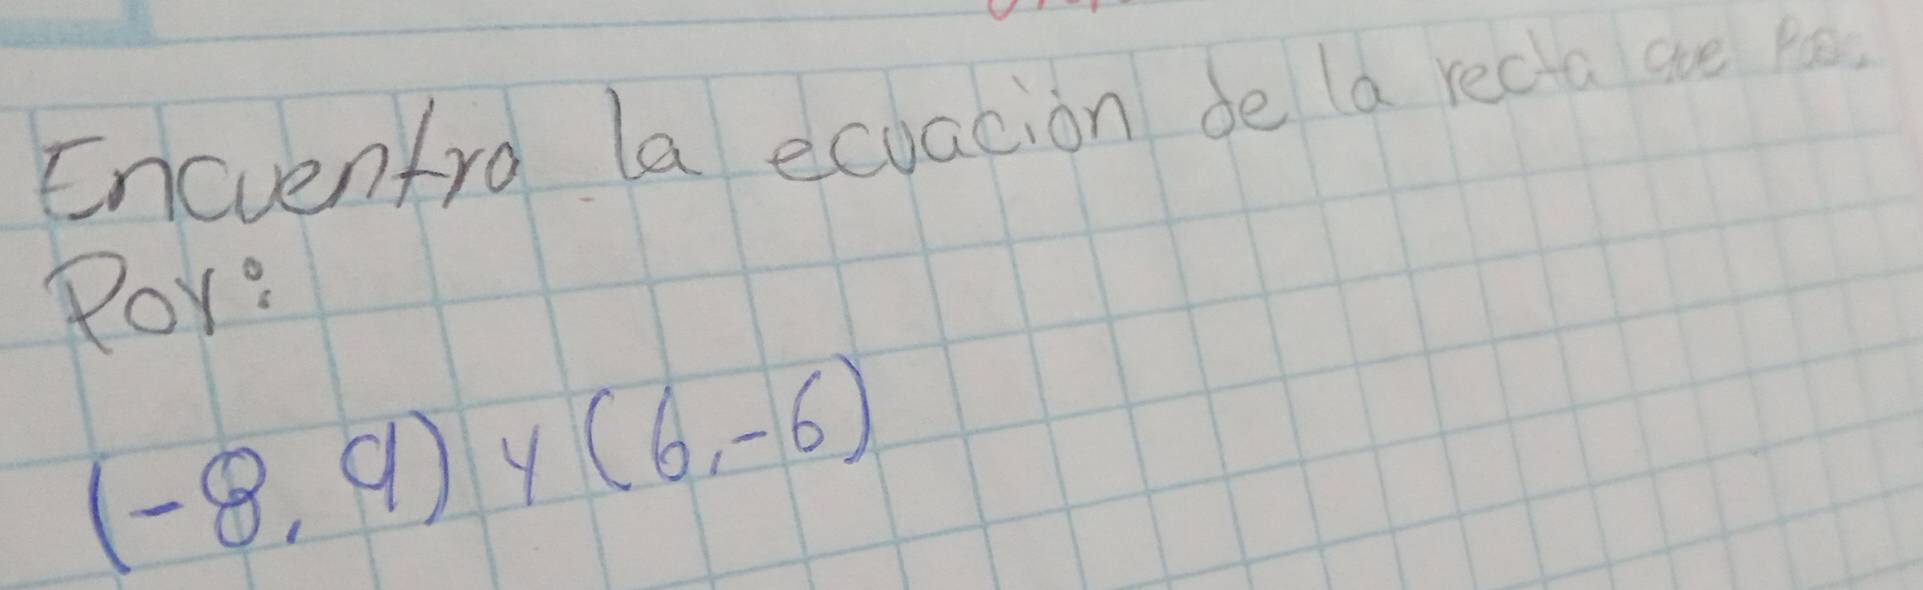 Encuentra la ecuación de la recta que
Por:
(-8, 9) y (6,-6)